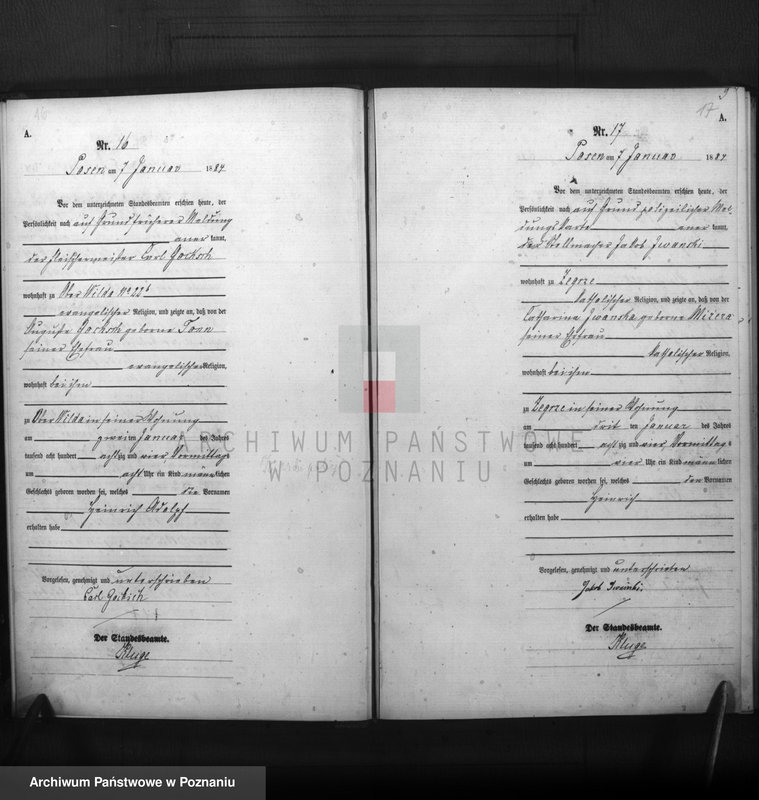 16
A.
Nr. 16
Posen am 7 Januar 1884
Vor dem unterzeichneten Standesbeamten erschien heute, der
Persönlichkeit nach auf Grund früherer Meldung
aner kannt,
der Fleischermeister Carl
wohnhaft zu Ober Wilda No 22b
evangelischer Religion, und zeigte an, daß von der
Auguste geborne Tonn
seiner Ehefrau
evangelischer Religion,
wohnhaft bei ihm
zu Ober Wilda in seiner Wohnung
am zweiten Januar des Jahres
tausend acht hundert achtzig und vier Vormittags
um acht Uhr ein Kind männlichen
Geschlechts geboren worden sei, welches die Vornamen
Heinrich Adolph
erhalten habe
Vorgelesen, genehmigt und unterschrieben
Carl
Der Standesbeamte.
Kluge
9
17
A.
Nr. 17
Posen am 7 Januar 1884
Vor dem unterzeichneten Standesbeamten erschien heute, der
Persönlichkeit nach auf Grund polizeilicher Mel-
dungskarte aner kannt,
der Stellmacher Jakob Iwanski
wohnhaft zu Zegrze
katholischer Religion, und zeigte an, daß von der
Catharina Iwanska geborne
seiner Ehefrau
katholischer Religion,
wohnhaft bei ihm
zu Zegrze in seiner Wohnung
am drit ten Januar des Jahres
tausend acht hundert achtzig und vier Vormittags
um vier Uhr ein Kind männlichen
Geschlechts geboren worden sei, welches den Vornamen
Heinrich
erhalten habe
Vorgelesen, genehmigt und unterschrieben
Jakob Iwanski.
Der Standesbeamte.
Kluge
ARCHIWUM PAŃSTWOWE
W POZNANIU
Archiwum Państwowe w Poznaniu